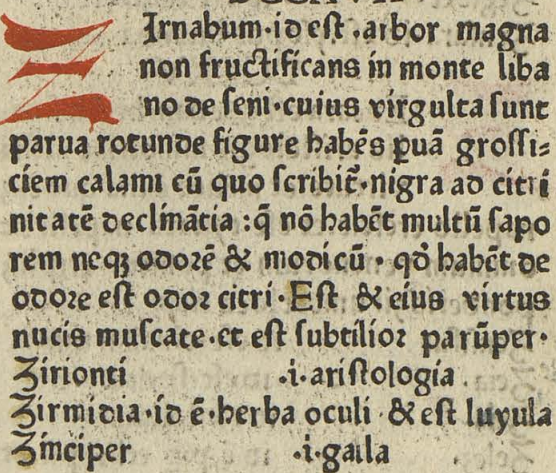 ZIrnabum·id eſt ·arbor magna
non fructificans in monte liba
no de ſeni·cuius virgulta ſunt
parua rotunde figure habẽs ꝑuã groſſi⸗
ciem calami cũ quo ſcribit᷑·nigra ad citri
nitatẽ declinãtia :q̃ nõ habẽt multũ ſapo
rem neqꝫ odorẽ & modicũ · qđ habẽt de
odore eſt odor citri·Eſt & eius virtus
nucis muſcate·et eſt ſubtilior parũper·
Zirionti ·i·ariſtologia.
Zirmidia·id ẽ·herba oculi & eſt luyula
Zinciper ·i·galla